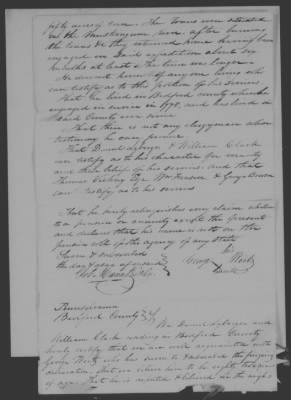 fifty acres of corn. The towns were situated
on the Muskingum river after burning
the towns &c they returned home having been
engaged in said expedition about six
months at least & the time was longer.
He does not know of any living who
can testify as to this portion of his services.
That he lived in Bedford county when he
engaged in service in 1778, and has lived in
said County ever since
That there is not any clergyman whose
testimony he can procure
That Daniel & William Clark
can testify as to his character for veracity
and their belief of his services. and that
Thomas Esq & George
can testify as to his services
That he hereby relinquishes any claim whatever
to a pension or annuity except the present
and declares that his name is not on the
pension roll of the agency of any state
Sworn & subscribed his
the day & year aforesaid George
mark
Pennsylvania
Bedford County SS
We Daniel and
William Clark residing in Bedford County
hereby certify that we are well acquainted with
George who has sworn to & subscribed the foregoing
declaration, that we believe him to be eighty
of age. That he is reputed & believed in the neigh